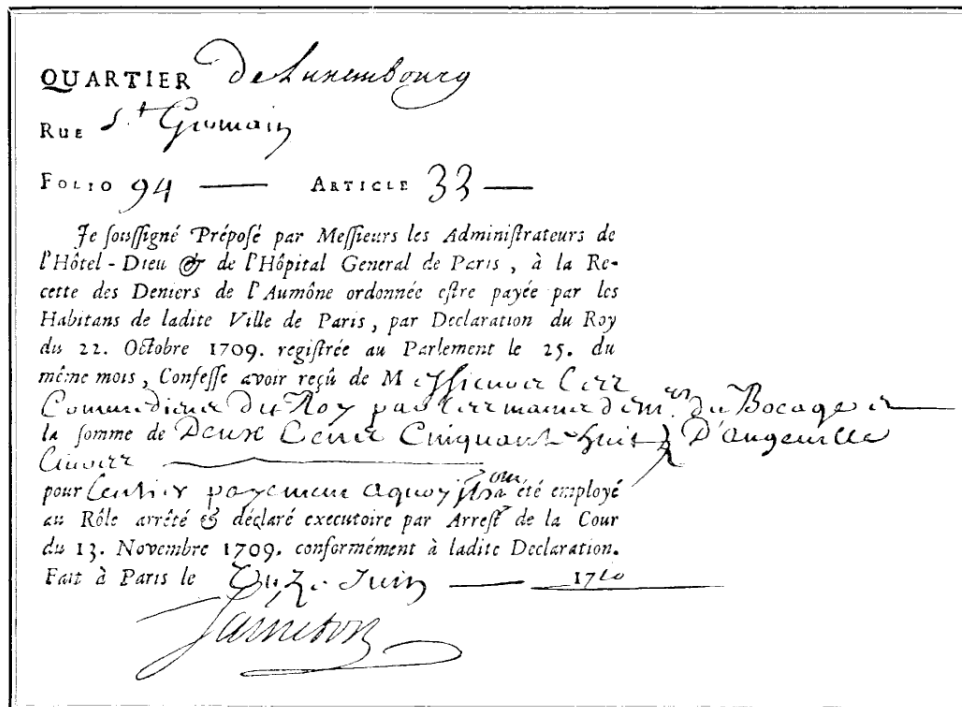 QUARTIER de Luxembourg
RUE St Germain
FOLIO 94 — ARTICLE 33 —
Je ſouſſigné Prépoſé par Meſſieurs les Adminiſtrateurs de
l'Hôtel-Dieu & de l'Hôpital General de Paris, à la Re-
cette des Deniers de l'Aumône ordonnée eſtre payée par les
Habitans de ladite Ville de Paris, par Declaration du Roy
du 22. Octobre 1709. regiſtrée au Parlement le 25. du
même mois, Confeſſe avoir reçû de Meſſieurs les
Commediens du Roy par les mains de mrs du Bocage et
la ſomme de Deux Cens Cinquante huit D'angeuille
Liures
pour Lentier payement aquoy ils ont été employé
au Rôle arrêté & déclaré executoire par Arreſt de la Cour
du 13. Novembre 1709. conformément à ladite Declaration.
Fait à Paris le Juin — 1710